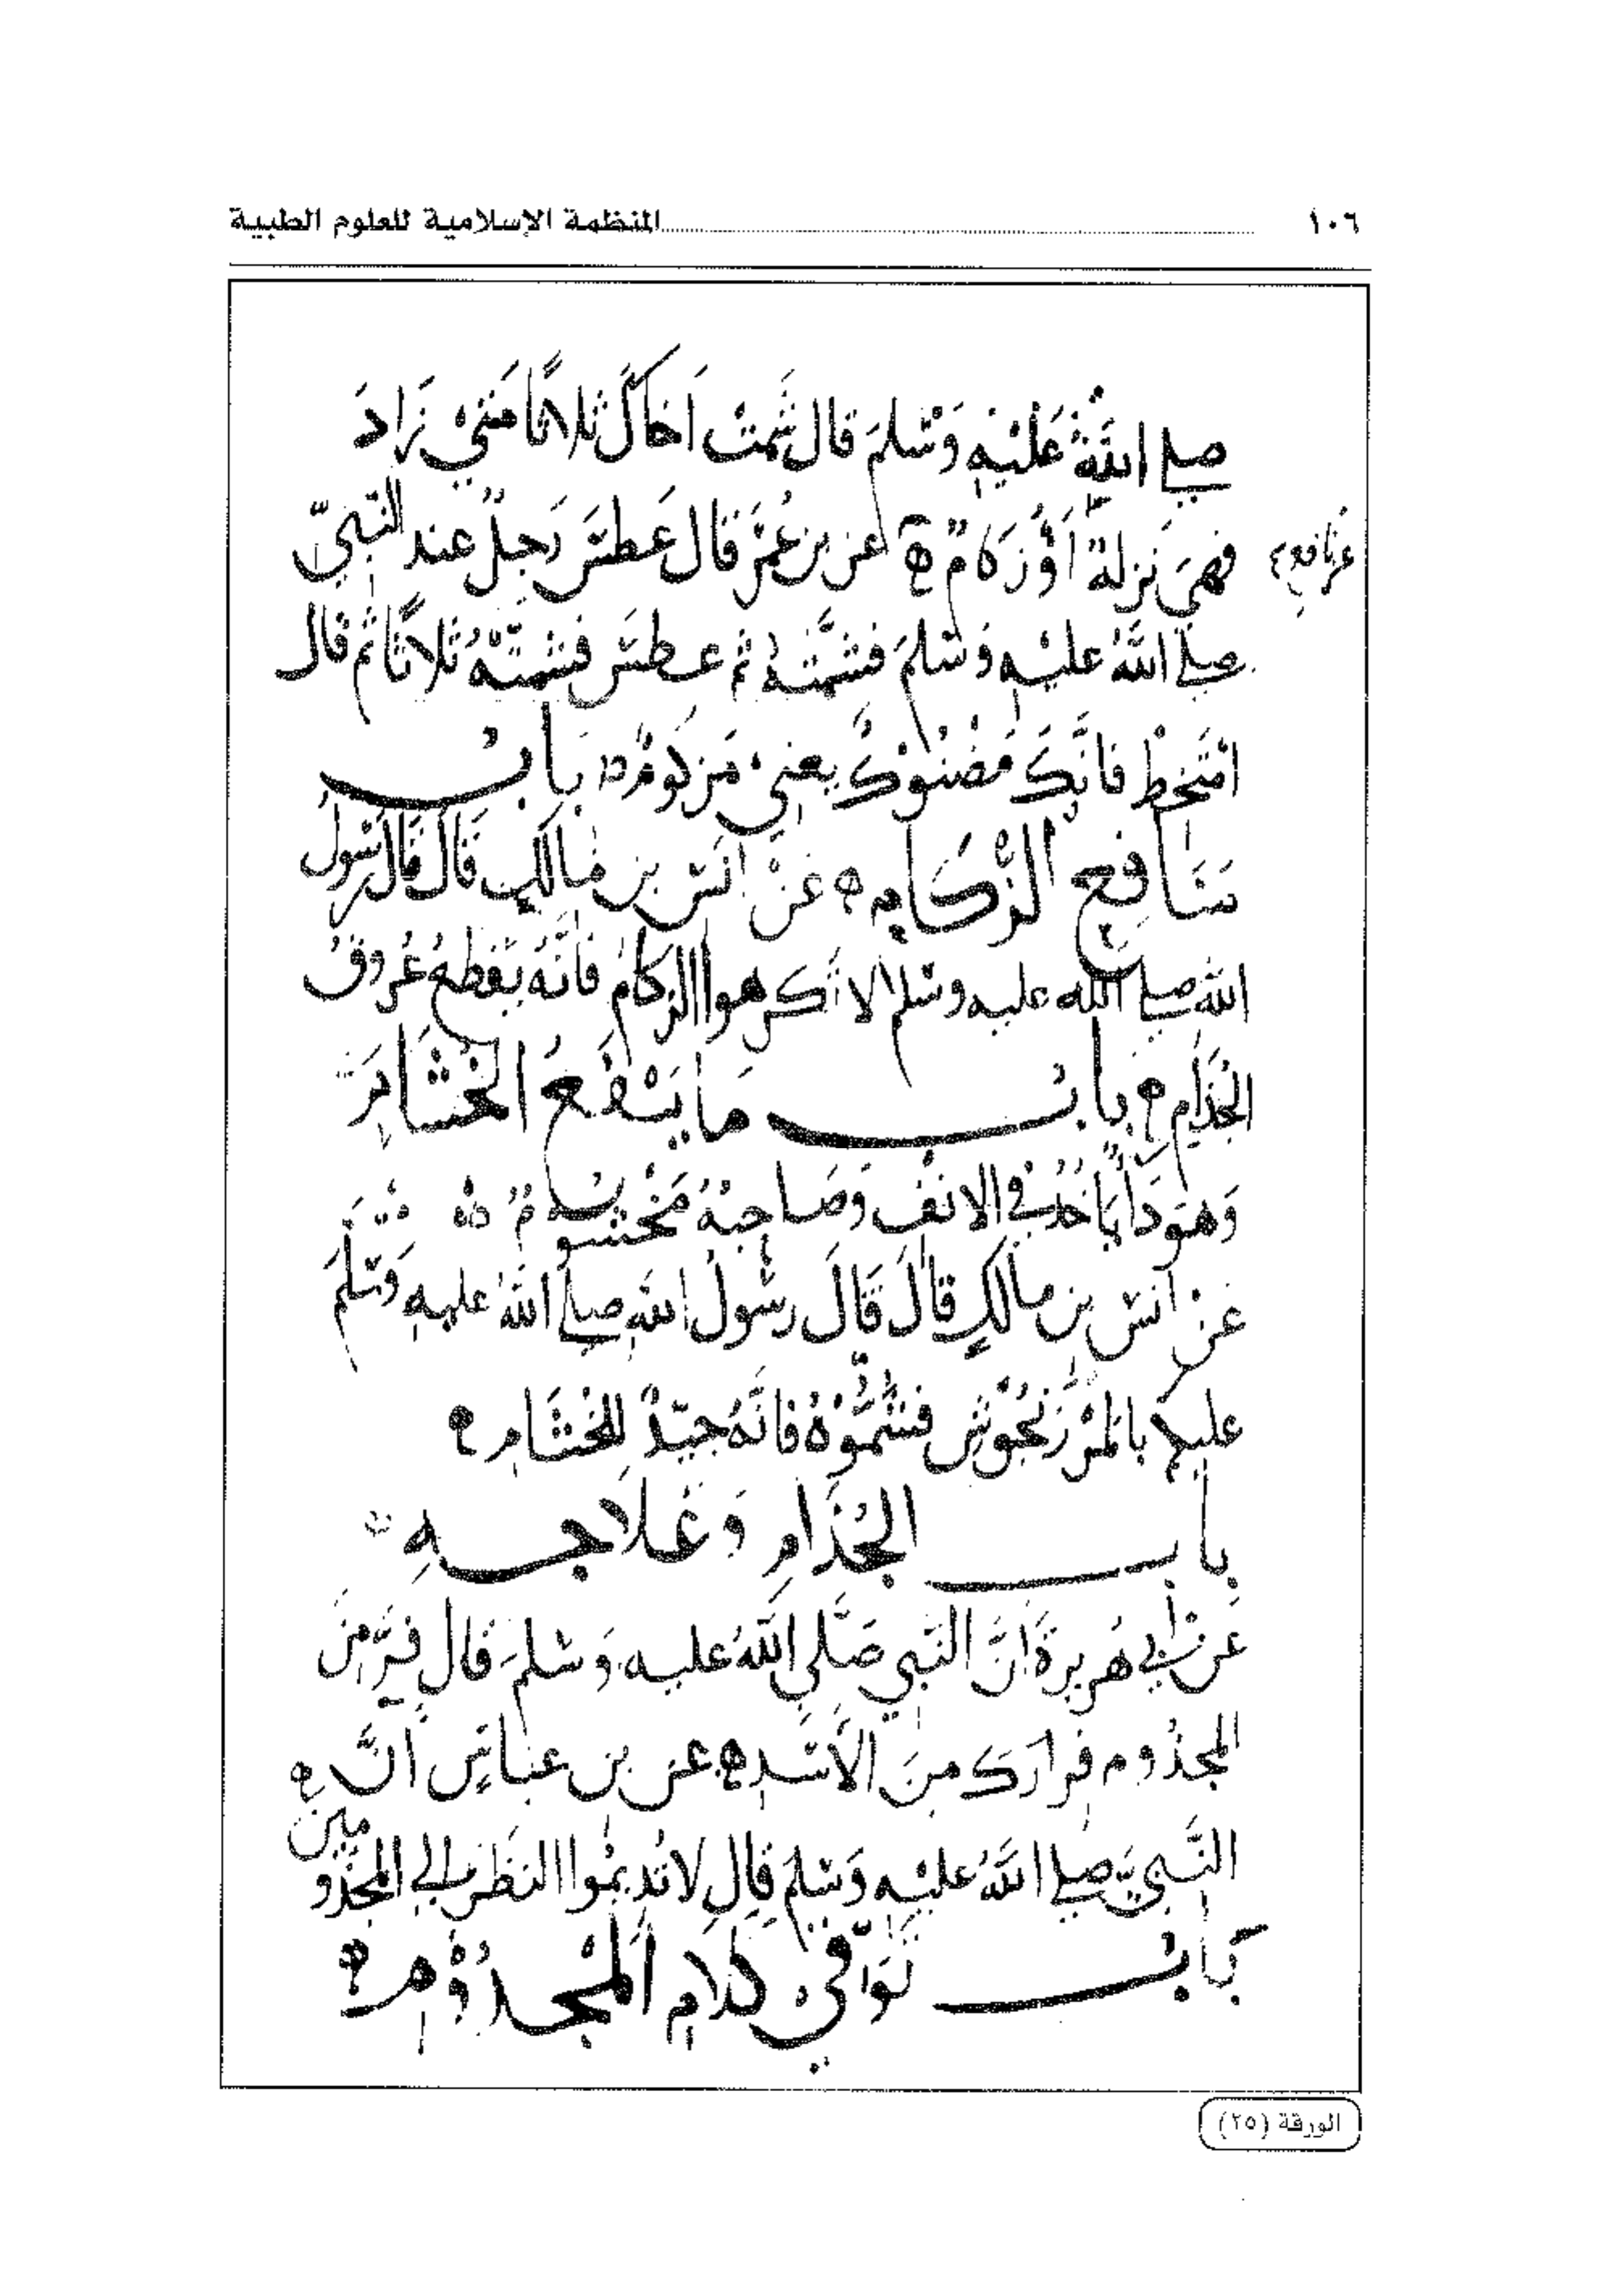 ١٠٦ المنظمة الإسلامية للعلوم الطبية
صلى اللهُ عَليْهِ وَسَلمَ قال شَمتْ اَخاكَ ثلاثًا فمَتىْ زَادَ
فهىَ نَزلةٌ اَوْ زكامٌ ه عن بن عُمَرَ قال عَطسَ رَجلٌ عند النَّبىّ
عن نافع
صلى اللهُ عليْهِ وَسَلمَ فشمَّتهُ ثم عطسَ فشمتَّهُ ثلاثًا ثم قال
امْتخطْ فانَّكَ مَضْنوُكٌ يعنى مَزكومٌ ه بَابُ
مَنَافع الزُكَام ه عَنْ انسَ بن مَالكٍ قَالَ قالَ رَسُولُ
الله صلى الله عليه وسَلم لا تكرهوا الزكامَ فانَّهُ يَقطعُ عُروُقَ
الجُذَامِ ه بابُ مَا يَنْفَعُ الخُشَامَ
وَهوَ دَاءٌ يَاخُذُ فى الانفِ وَصَاحِبُهُ مَخْشُومٌ ه
عَنْ انسَ بن مالكٍ قالَ قَالَ رسُولُ اللهِ صلى اللهُ عليهِ وَسَلمَ
عليكم بالمَرْزَنجُوْشِ فشُمُّوْهُ فانَّهُ جيّدٌ للخُشَامِ ه
بابُ الجُذَامِ وَعَلاجهِ
عَنْ ابى هُريرةَ انَّ النَّبي صَلَّى اللهُ عليه وَسَلمَ قال فرَّ مِنَ
المجذُومِ فرارَكَ منَ الأَسَدِ ه عن بن عباسٍ اَنَّ
النَّبىَّ صلى اللهُ عليْهِ وَسَلمَ قال لا تُديمُوا النظَرَ الى المجَذُو
مين ه
بَابُ تَوَاقى كلامِ المْجذُوْمِ ه
الورقة (٢٥)